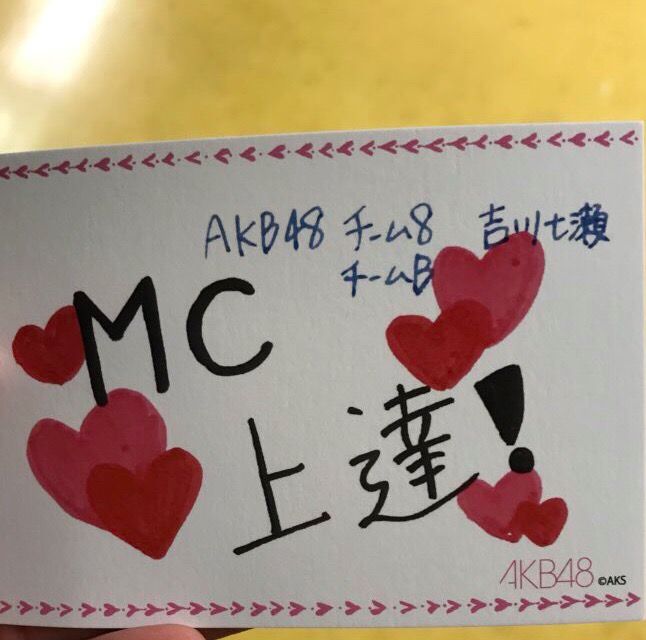 AKB48 チーム8 吉川七瀬
チームB
MC
上達!
AKB48 ©AKS